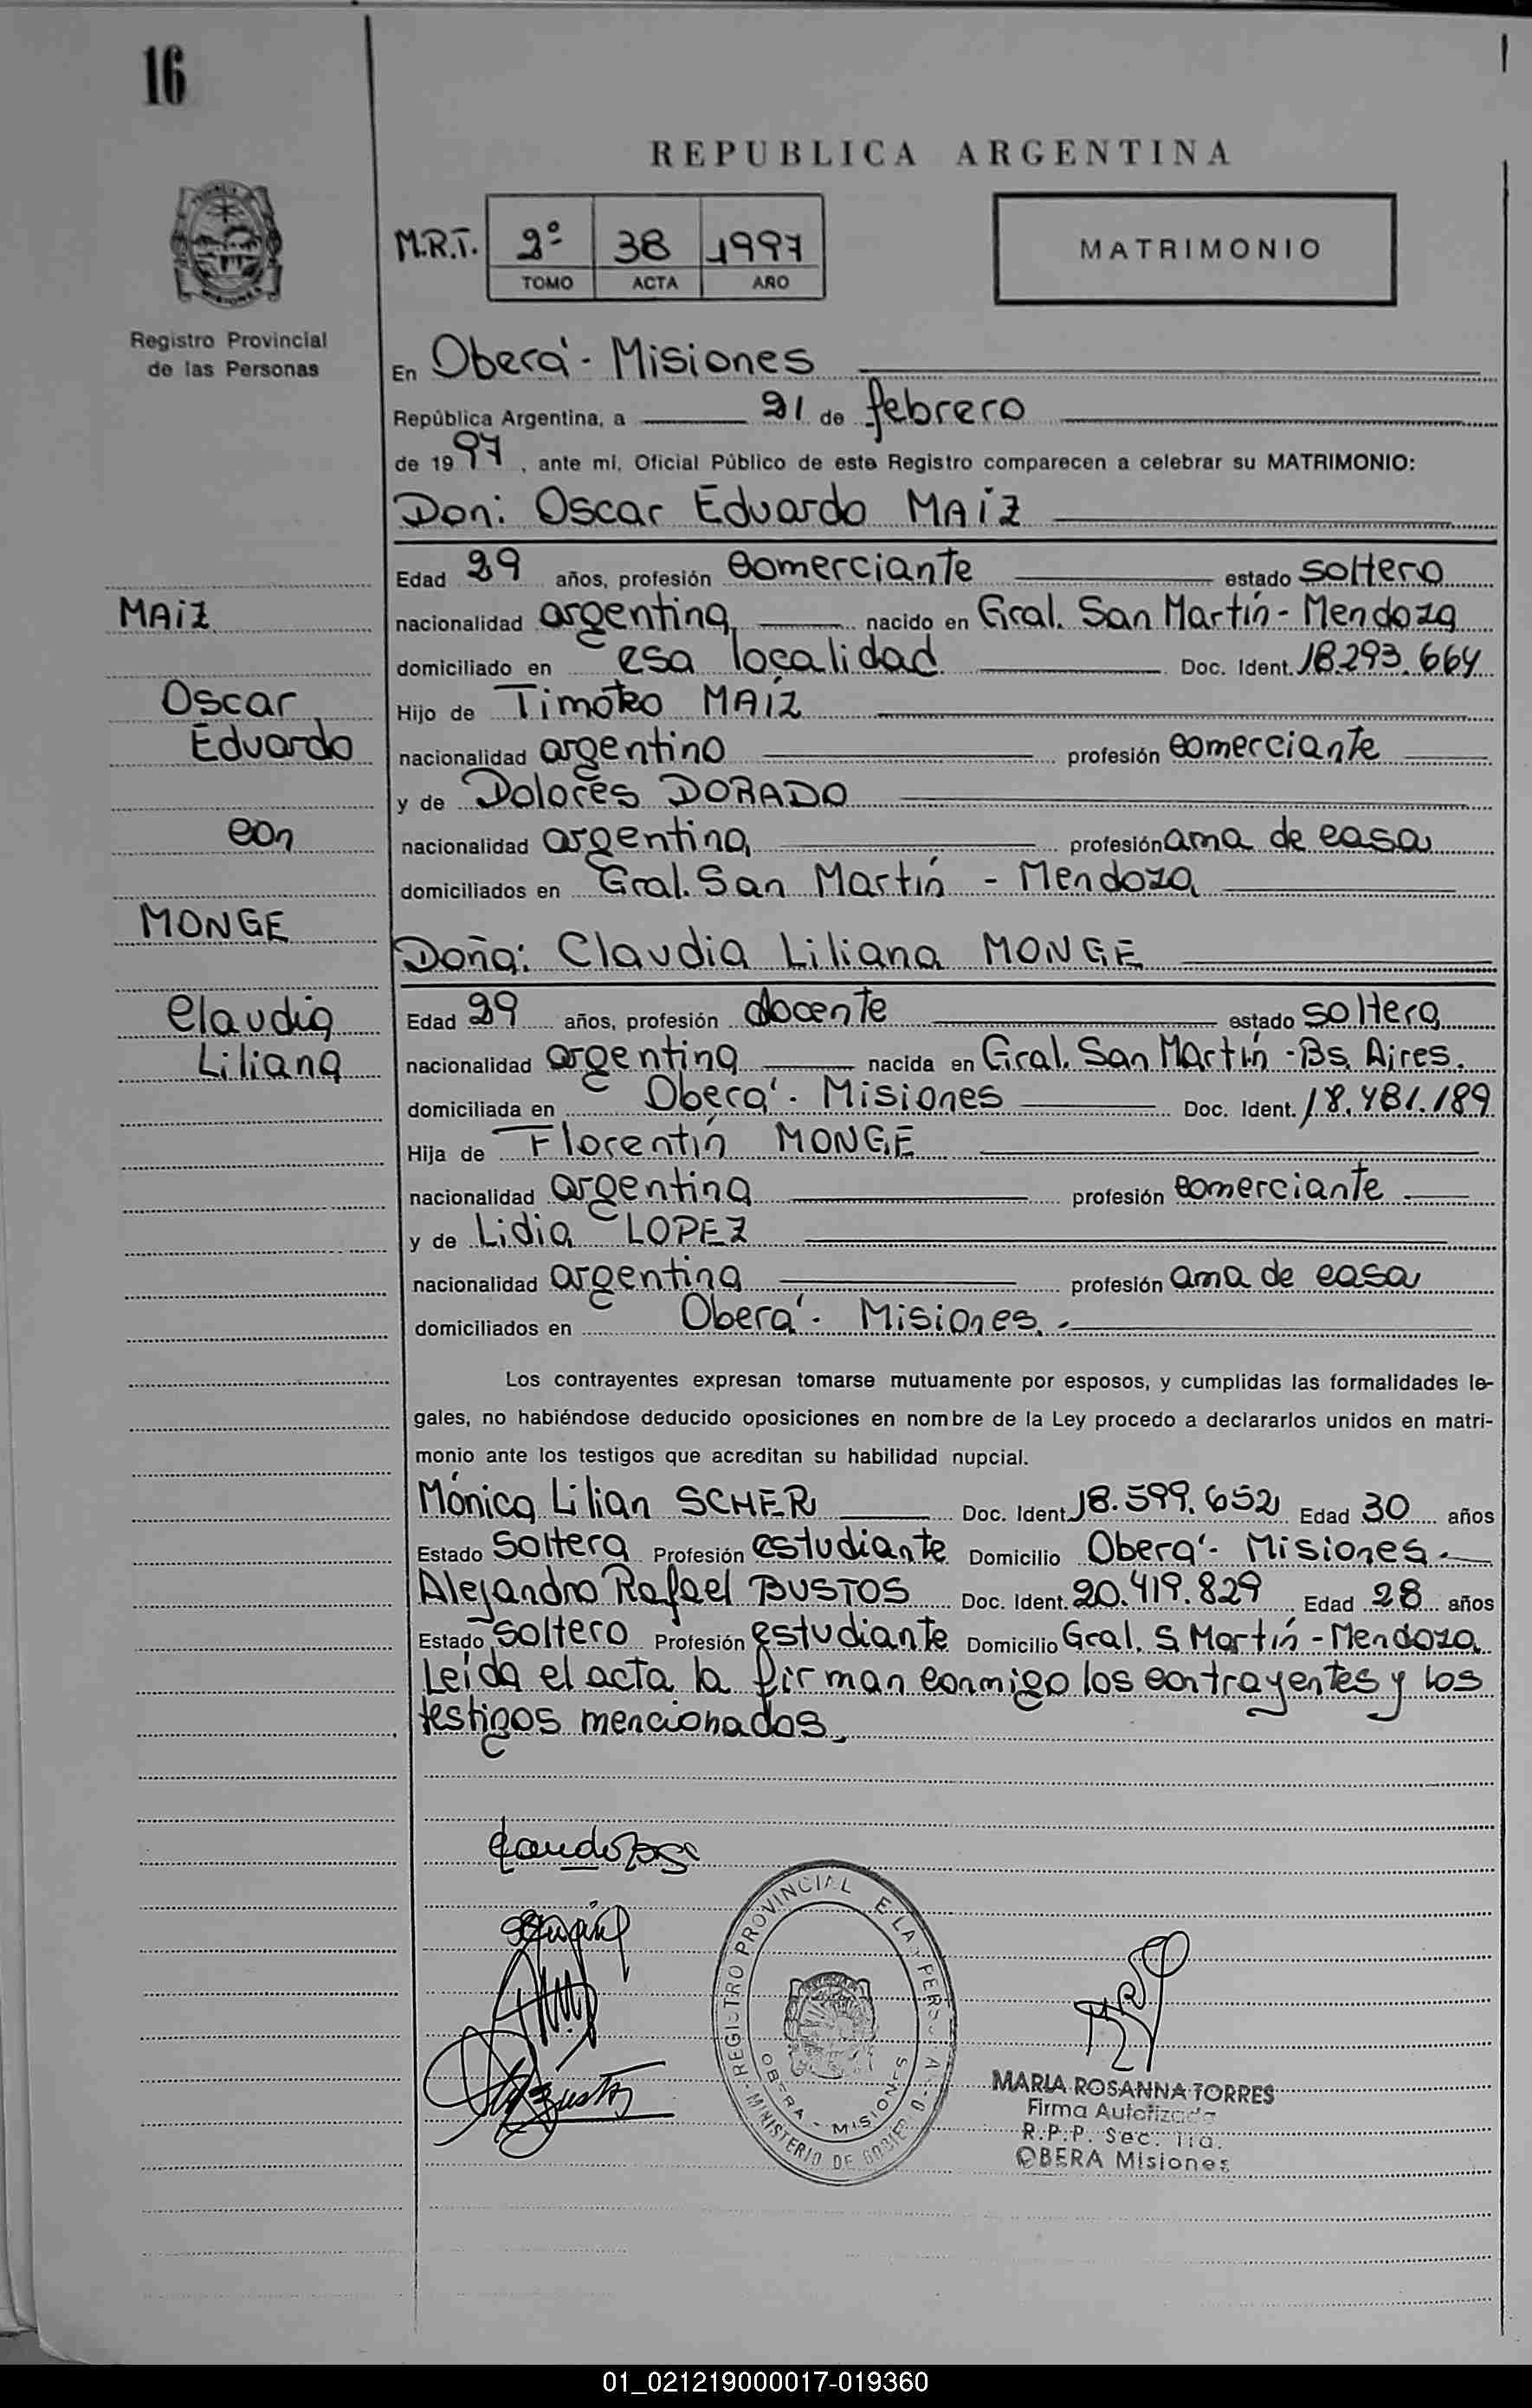 16
REPUBLICA ARGENTINA
M.R.T. 2º 38 1997
TOMO ACTA AÑO
MATRIMONIO
Registro Provincial
de las Personas
En Oberá - Misiones
República Argentina, a 21 de febrero
de 1997, ante mí, Oficial Público de este Registro comparecen a celebrar su MATRIMONIO:
Don: Oscar Eduardo MAIZ
Edad 29 años, profesión comerciante estado soltero
nacionalidad argentina nacido en Gral. San Martín - Mendoza
domiciliado en esa localidad Doc. Ident. 18.293.664
Hijo de Timoteo MAÍZ
nacionalidad argentino profesión comerciante
y de Dolores DORADO
nacionalidad argentina profesión ama de casa
domiciliados en Gral. San Martín - Mendoza
MAIZ
Oscar
Eduardo
con
MONGE
Claudia
Liliana
Doña: Claudia Liliana MONGE
Edad 29 años, profesión docente estado soltera
nacionalidad argentina nacida en Gral. San Martín - Bs. Aires.
domiciliada en Oberá - Misiones Doc. Ident. 18.481.189
Hija de Florentín MONGE
nacionalidad argentina profesión comerciante
y de Lidia LOPEZ
nacionalidad argentina profesión ama de casa
domiciliados en Oberá - Misiones.-
Los contrayentes expresan tomarse mutuamente por esposos, y cumplidas las formalidades le-
gales, no habiéndose deducido oposiciones en nombre de la Ley procedo a declararlos unidos en matri-
monio ante los testigos que acreditan su habilidad nupcial.
Mónica Lilian SCHER Doc. Ident. 18.599.652 Edad 30 años
Estado Soltera Profesión estudiante Domicilio Oberá - Misiones.-
Alejandro Rafael BUSTOS Doc. Ident. 20.419.829 Edad 28 años
Estado soltero Profesión estudiante Domicilio Gral. S. Martín - Mendoza
Leída el acta la firman conmigo los contrayentes y los
testigos mencionados.
REGISTRO PROVINCIAL E LA PERS
OBERA - MISIONES
MINISTERIO DE GOBIERNO
MARIA ROSANNA TORRES
Firma Autorizada
R.P.P. Sec. 1ra.
OBERA Misiones
01_021219000017-019360